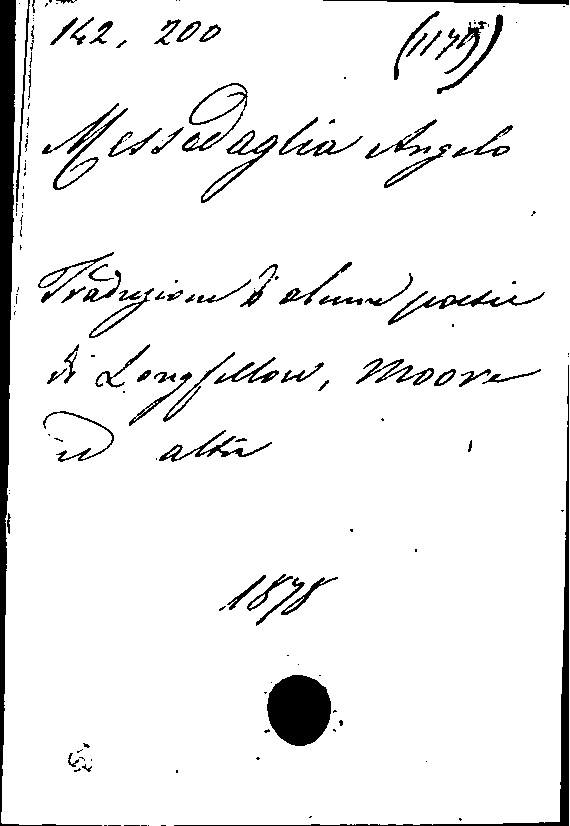 142, 200 (1179)
Messedaglia Angelo
Traduzione di alcune poesie
di Longfellow, Moore
ed altri
1878